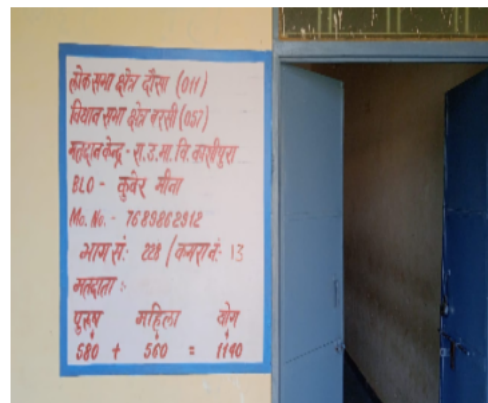 लोक सभा क्षेत्र दौसा (011)
विधान सभा क्षेत्र बस्सी (057)
मतदान केन्द्र - रा. उ. मा. वि. काशीपुरा
BLO - कुबेर मीना
Mo. No. - 7689862912
भाग सं: 228 / कमरा नं: 13
मतदाता :
पुरूष महिला योग
580 + 560 = 1140